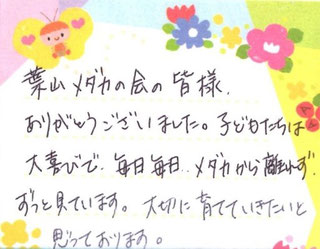 葉山メダカの会の皆様.
ありがとうございました。子どもたちは
大喜びで、毎日毎日、メダカから離れず.
ずっと見ています。大切に育てていきたいと
思っております。